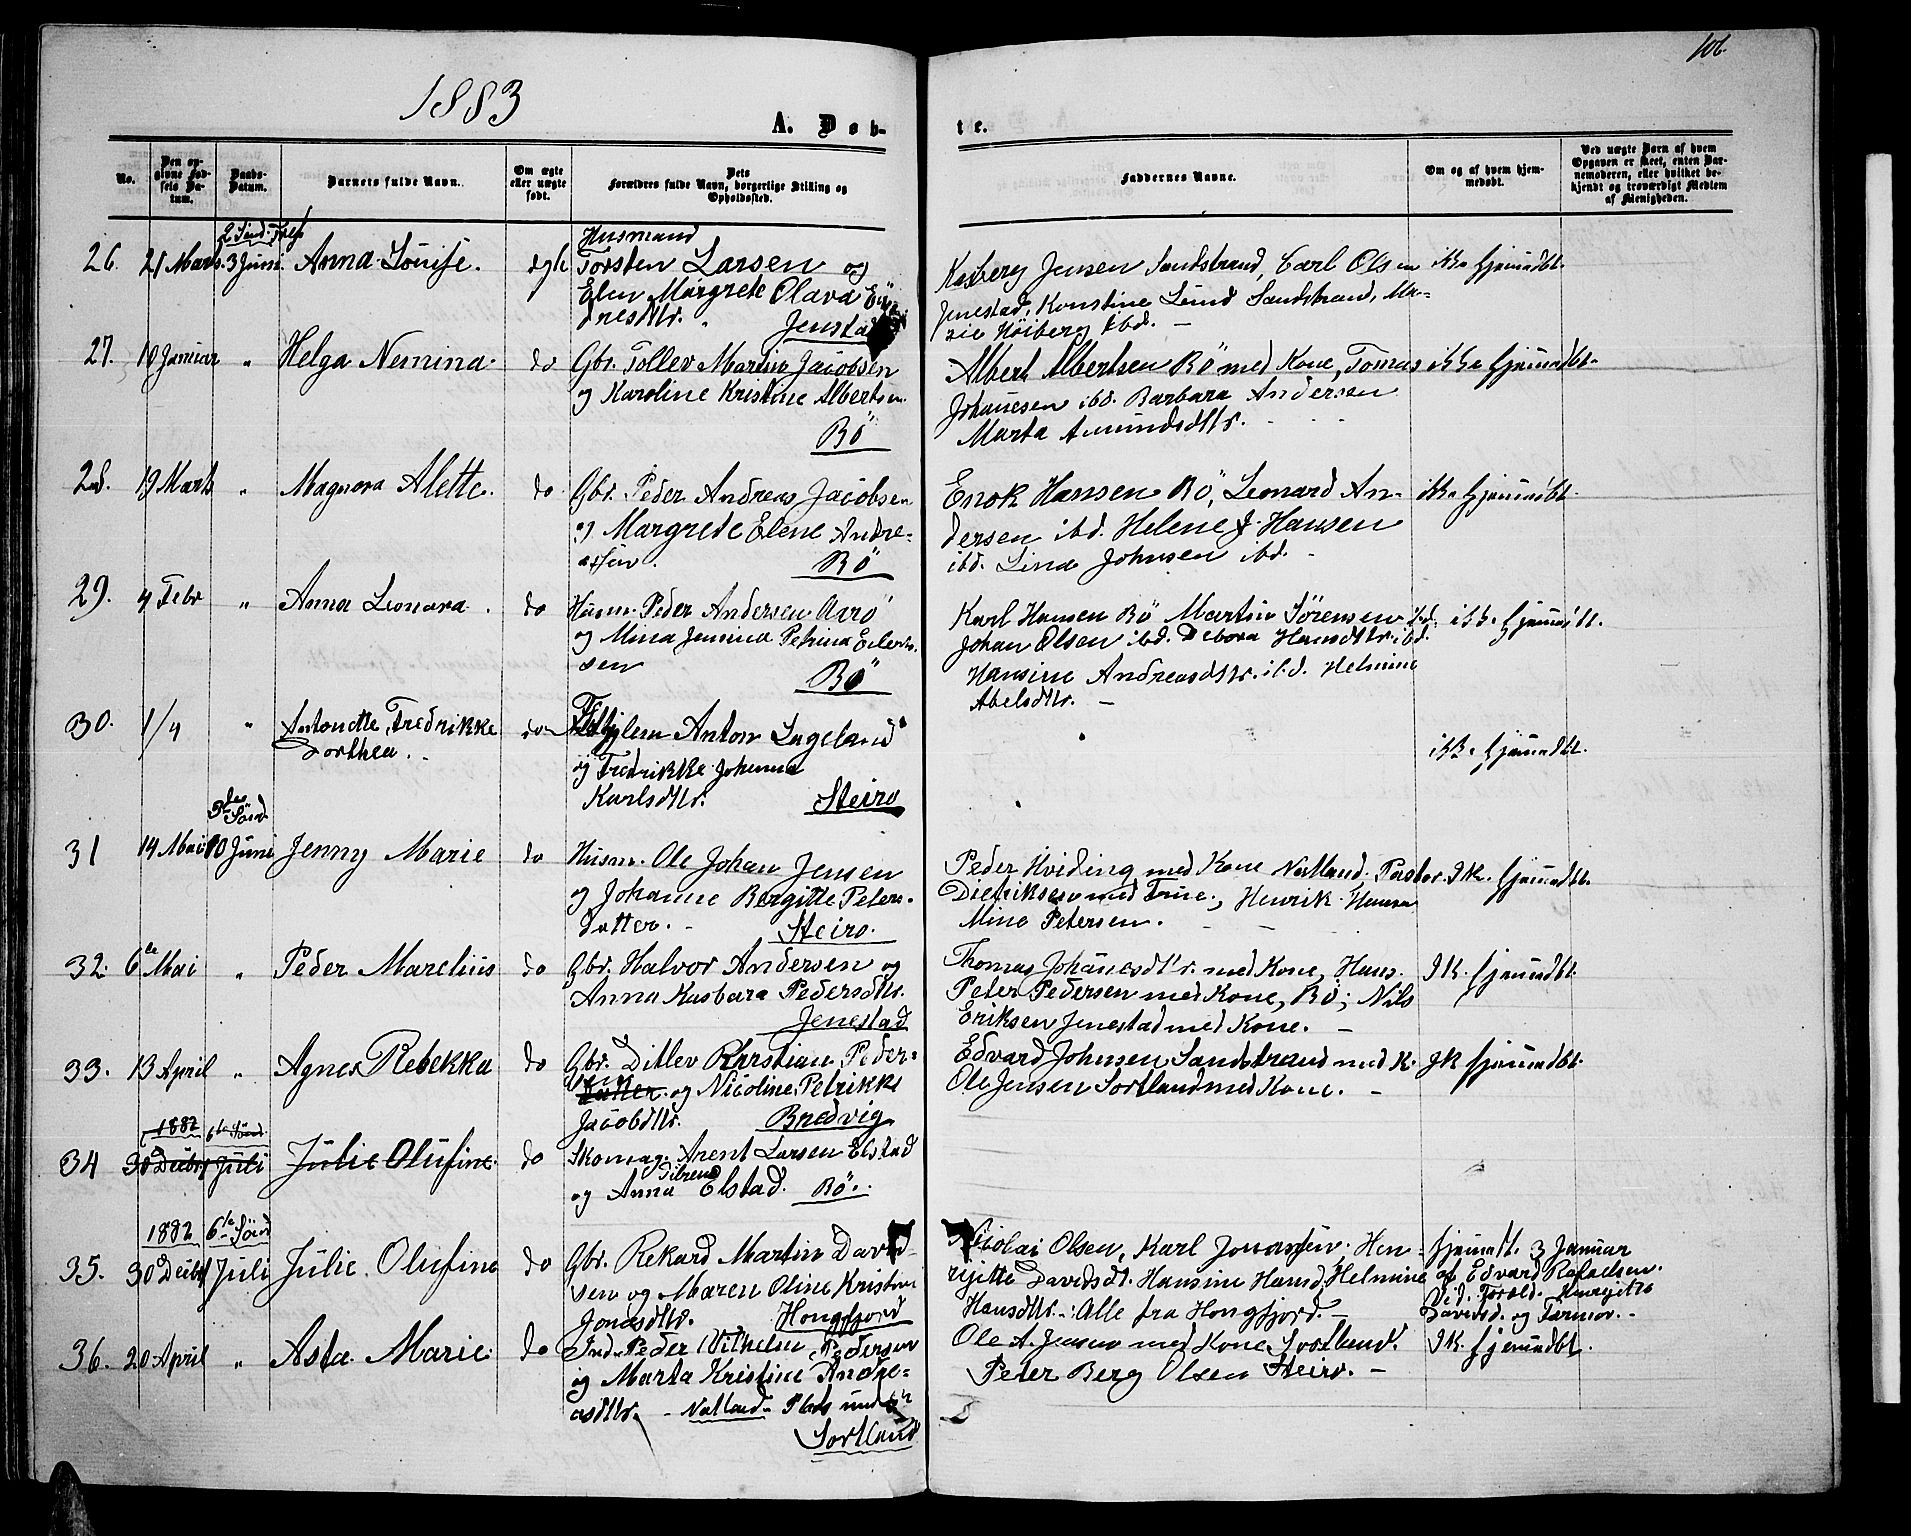 106.
1883
A. Døb-
te.
No.
Den op-
givne Fød-
sels Da-
tum.
Daabs-
Datum.
Barnets fulde Navn.
Om ægte
eller uægte
født.
Dets
Forældres fulde Navn, borgerlige Stilling og
Opholdssted.
Faddernes Navne.
Om og af hvem hjem-
medøbt.
Ved uægte Børn af hvem
Opgaven er skeet, enten Bar-
nemoderen, eller hvilket be-
kjendt og troværdigt Medlem
af Menigheden.
26. 21 Marts 3 Juni Anna Louise.
Husmand
Torsten Larsen og
Elen Margrete Olava
Jenstad
Jensen Sandstrand, Carl Olsen
Jenestad, Konstine Lund Sandstrand, Ma-
rie Höiberg ibd. —
ikke hjemmdbt.
27. 10 Januar " Helga Nemina. do
Gbr. Tollev Martin Jacobsen
og Karoline Kristine Albertsen.
Bö
Albert Albertsen Bö med Kone, Tomas
Johanesen ibd. Barbara Andersen
Marta Amundsdtr.
ikke hjemmdbt.
28. 19 Marts " Magnora Alette. do
Gbr. Peder Andreas Jacobsen
og Margrede Elene Andre-
assen. Bö
Enok Hansen Bö, Leonard An-
dersen ibd. Helene J. Hansen
ibd. Lina Johnsen ibd. -
ikke hjemmdbt.
29. 4 Febr " Anna Leonora. do
Husm. Peder Andersen Aarö
og Mina Jensina Petrina Eilert-
sen
Bö
Karl Hansen Bö Martin Sörensen ibd.
Johan Olsen ibd. Debora Hansdtr. ibd.
Hansine Andreasdtr. ibd. Helmine
Abelsdtr. —
ikke hjemmdbt.
30. 1/4 " Antonette, Fredrikke
Dorthea. do
Anton Lageland
og Fredrikke Johanna
Karlsdtr. Steiro
ikke hjemmdbt.
3de Sönd
31 14 Mai 10 Juni Jenny Marie do
Husm. Ole Johan Jensen
og Johanne Bergitte Peters-
datter. - Steiro.
Peder Hviding med Kone Natland. Pastor
Diedriksen med Frue., Henrik Hansen
Mina Petersen.
Ik. hjemmdbt.
32. 6te Mai " Peder Marelius do
Gbr. Halvor Andersen og
Anna Kasbara Pedersdtr.
Jenestad
Thomas Johanesdtr. med Kone, Hans
Peter Pedersen med Kone, Bö; Nils
Eriksen Jenestad med Kone. —
Ik. hjemmdbt.
33. 13 April " Agnes Rebekka do
Gbr. Ditlev Kristian Peder-
sen og Nicoline Petrikke
Jacobdtr. Bredvig
Edvard Johnsen Sandstrand med K.
Ole Jensen Sortland med Kone. —
Ik hjemmdbt.
1882 6te Sönd.
34 30 Decbr Juli Julie Olufine. do
Skomag. Arent Larsen Elstad
og Anna Elstad. Bö.
1882 6te Sönd
35. 30 Decbr Juli Julie Olufine do
Gbr. Rekard Martin David-
sen og Maren Oline Kristine
Jonasdtr. Hongfjord
Nicolai Olsen, Karl Jonassen. Hen-
rijtte Davidsdt. Hansine Hansd, Helmine
Hansdtr. : Alle fra Hongfjord. —
hjemmdt. 3 Januar
af Edvard Rafaelsen.
Vid. Foræld. Henrijtte
Davidsd. og Farmor. -
36. 20 April " Asta Marie. do
Ind. Peder Vilhelm Pedersen
og Marta Kristine Andre-
asdtr. - Natland - Plads under
Sortland
Ole A. Jensen med Kone Sortland.
Peter Berg Olsen Steiro. —
Ik. hjemmdbt.